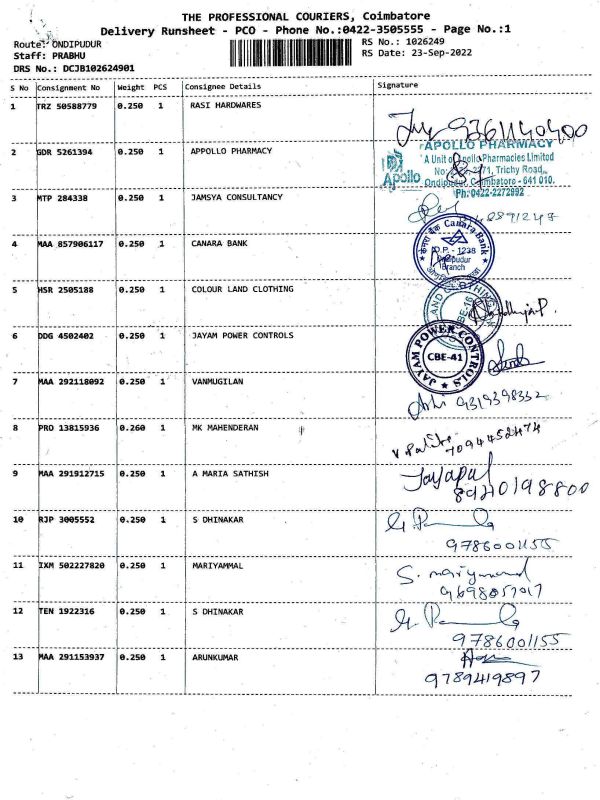 THE PROFESSIONAL COURIERS, Coimbatore
Delivery Runsheet - PCO - Phone No.:0422-3505555 - Page No.:1
Route: ONDIPUDUR
RS No.: 1026249
Staff: PRABHU
RS Date: 23-Sep-2022
DRS No.: DCJB102624901
S No Consignment No Weight PCS Consignee Details Signature
1 TRZ 50588779 0.250 1 RASI HARDWARES
2 GDR 5261394 0.250 1 APPOLLO PHARMACY
APOLLO PHARMACY
A Unit of Apollo Pharmacies Limited
Trichy Road,
Apollo
Ondipudur, Coimbatore - 641 010.
Ph:0422-2272892
3 MTP 284338 0.250 1 JAMSYA CONSULTANCY
4 MAA 857906117 0.250 1 CANARA BANK
Canara Bank
D.P. - 1238
Ondipudur
Branch
5 HSR 2505188 0.250 1 COLOUR LAND CLOTHING
6 DDG 4502402 0.250 1 JAYAM POWER CONTROLS
JAYAM POWER CONTROLS
CBE-41
7 MAA 292118092 0.250 1 VANMUGILAN
9319398332
8 PRO 13815936 0.260 1 MK MAHENDERAN
7094452474
9 MAA 291912715 0.250 1 A MARIA SATHISH
Jayapal
8940198800
10 RJP 3005552 0.250 1 S DHINAKAR
9786001155
11 IXM 502227820 0.250 1 MARIYAMMAL
12 TEN 1922316 0.250 1 S DHINAKAR
9786001155
13 MAA 291153937 0.250 1 ARUNKUMAR
9789419897